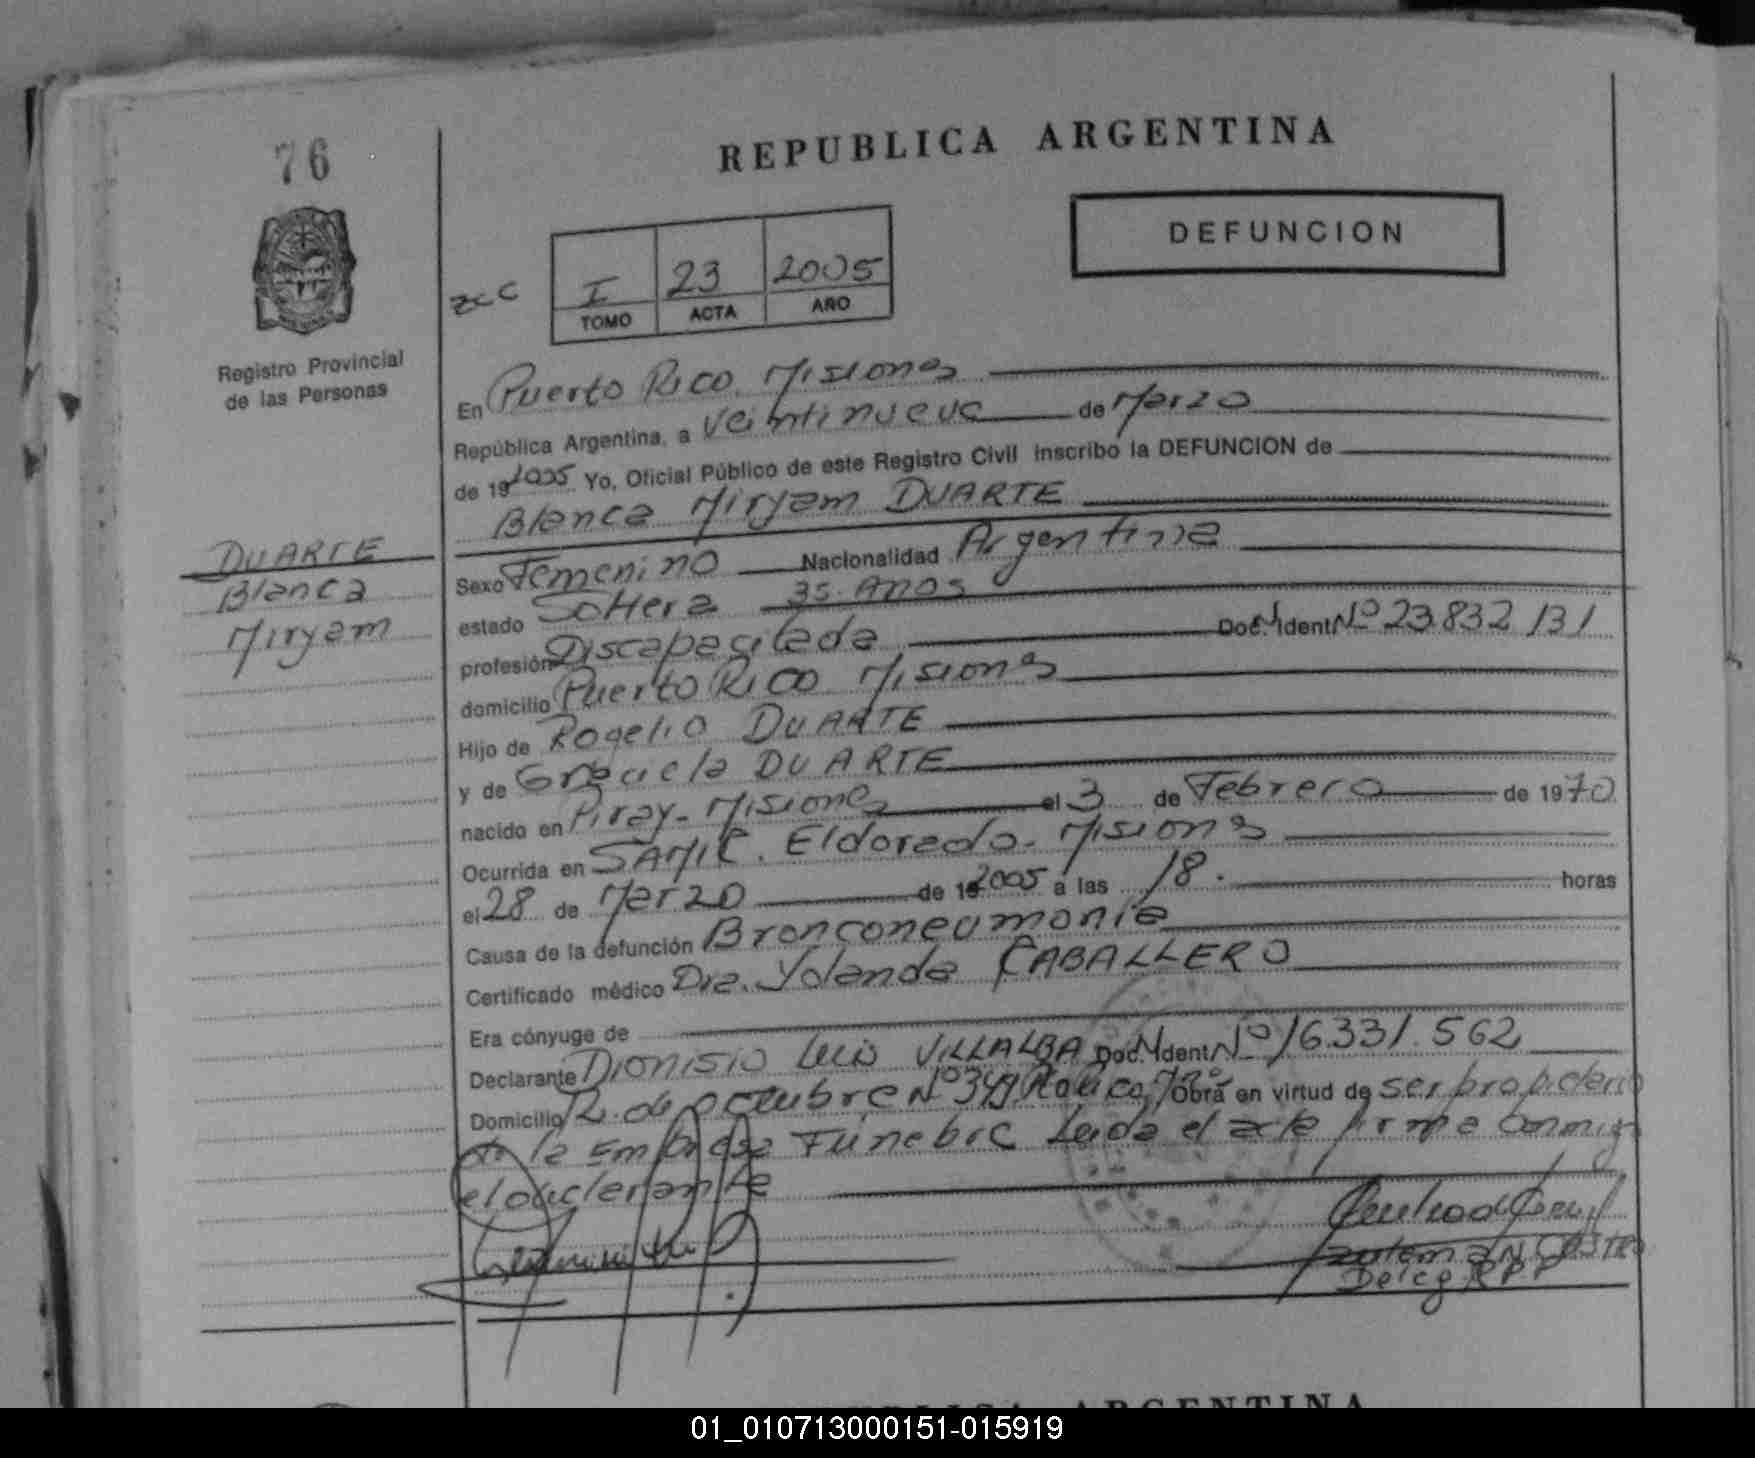 76
REPUBLICA ARGENTINA
DEFUNCION
zcc
I 23 2005
TOMO ACTA AÑO
Registro Provincial
de las Personas
En Puerto Rico. Misiones
República Argentina, a veintinueve de Marzo
de 19 2005 Yo, Oficial Público de este Registro Civil inscribo la DEFUNCION de
Blanca Miryam DUARTE
DUARTE
Blanca
Miryam
Sexo Femenino Nacionalidad Argentina
estado Soltera 35 Años
profesión Discapacitada Doc. Ident. Nº 23.832 131
domicilio Puerto Rico Misiones
Hijo de Rogelio DUARTE
y de Graciela DUARTE
nacido en Piray - Misiones el 3 de Febrero de 1970
Ocurrida en SAMIC. Eldorado - Misiones
el 28 de Marzo de 19 2005 a las 18. horas
Causa de la defunción Bronconeumonia
Certificado médico Dra. Yolanda CABALLERO
Era cónyuge de
Declarante DIONISIO Luis VILLALBA Doc. N Ident. Nº 16.331.562
Domicilio 12 de octubre Nº 349 Obra en virtud de ser propietario
de la Empresa Funebre Leida el acta firma conmigo
el declarante
Deleg RPP
REPUBLICA ARGENTINA
01_010713000151-015919